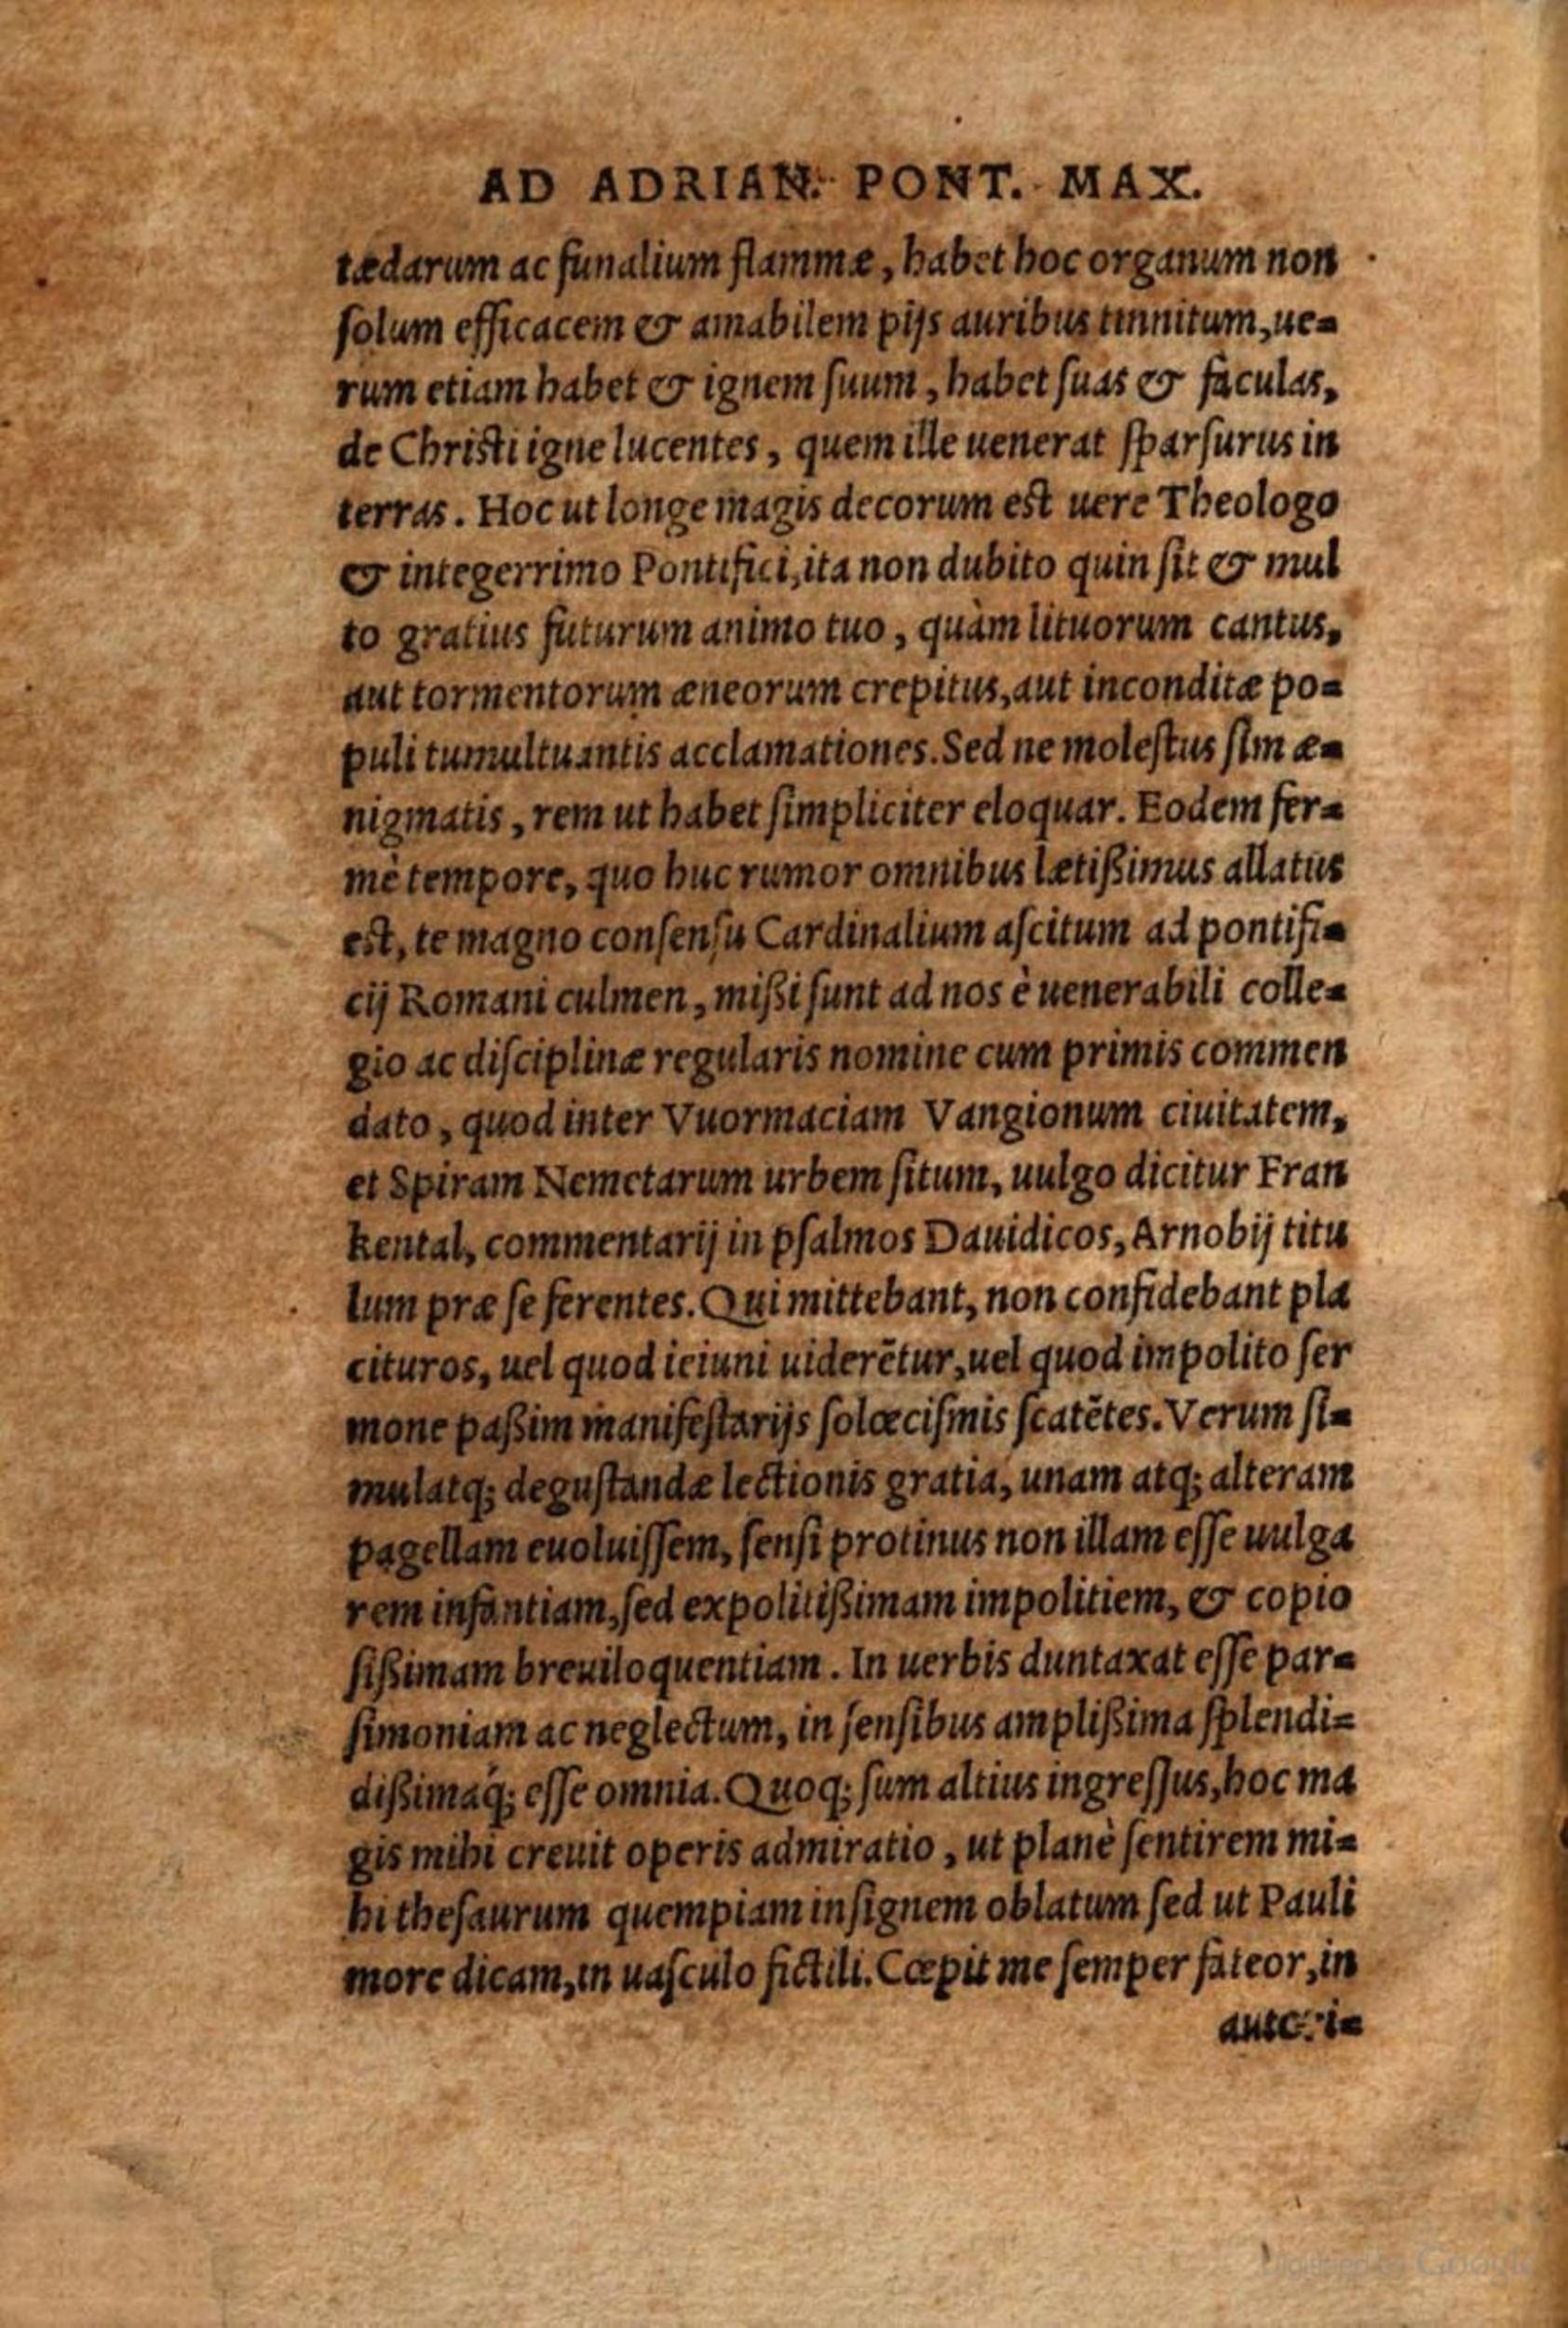 AD ADRIAN. PONT. MAX.
tædarum ac funalium flammæ, habet hoc organum non
ſolum efficacem & amabilem pijs auribus tinnitum, ue=
rum etiam habet & ignem ſuum, habet ſuas & faculas,
de Chriſti igne lucentes, quem ille uenerat ſparſurus in
terras. Hoc ut longe magis decorum eſt uere Theologo
& integerrimo Pontifici, ita non dubito quin ſit & mul
to gratius futurum animo tuo, quàm lituorum cantus,
aut tormentorum æneorum crepitus, aut inconditæ po=
puli tumultuantis acclamationes. Sed ne moleſtus ſim æ=
nigmatis, rem ut habet ſimpliciter eloquar. Eodem fer=
mè tempore, quo huc rumor omnibus lætißimus allatus
eſt, te magno conſenſu Cardinalium aſcitum ad pontifi=
cij Romani culmen, mißi ſunt ad nos è uenerabili colle=
gio ac diſciplinæ regularis nomine cum primis commen
dato, quod inter Vuormaciam Vangionum ciuitatem,
et Spiram Nemetarum urbem ſitum, uulgo dicitur Fran
kental, commentarij in pſalmos Dauidicos, Arnobij titu
lum præ ſe ferentes. Qui mittebant, non confidebant pla
cituros, uel quod ieiuni uiderẽtur, uel quod impolito ſer
mone paßim manifeſtarijs ſolœciſmis ſcatẽtes. Verum ſi=
mulatq; deguſtandæ lectionis gratia, unam atq; alteram
pagellam euoluiſſem, ſenſi protinus non illam eſſe uulga
rem infantiam, ſed expolitißimam impolitiem, & copio
ſißimam breuiloquentiam. In uerbis duntaxat eſſe par=
ſimoniam ac neglectum, in ſenſibus amplißima ſplendi=
dißimaq́; eſſe omnia. Quoq; ſum altius ingreſſus, hoc ma
gis mihi creuit operis admiratio, ut planè ſentirem mi=
hi theſaurum quempiam inſignem oblatum ſed ut Pauli
more dicam, in uaſculo fictili. Cœpit me ſemper fateor, in
autori=
Digitized by Google